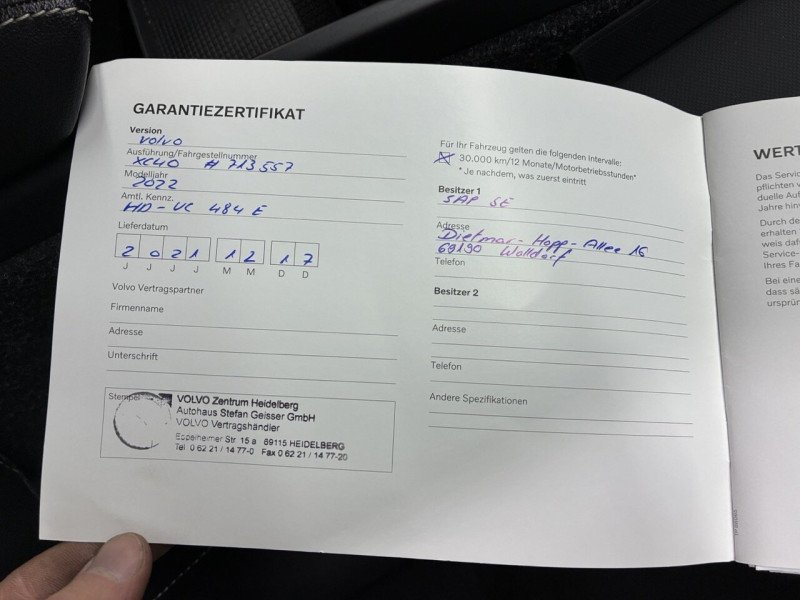 GARANTIEZERTIFIKAT
Version
Volvo
Ausführung/Fahrgestellnummer
XC40 # 713 557
Modelljahr
2022
Amtl. Kennz.
HD-VC 484 E
Lieferdatum
2 0 2 1 1 2 1 7
J J J J M M D D
Volvo Vertragspartner
Firmenname
Adresse
Unterschrift
Stempel
VOLVO Zentrum Heidelberg
Autohaus Stefan Geisser GmbH
VOLVO Vertragshändler
Eppelheimer Str. 15 a 69115 HEIDELBERG
Tel 0 62 21 / 14 77-0 Fax 0 62 21 / 14 77-20
Für Ihr Fahrzeug gelten die folgenden Intervalle:
30.000 km/12 Monate/Motorbetriebsstunden*
* Je nachdem, was zuerst eintritt
Besitzer 1
SAP SE
Adresse
Dietmar-Hopp-Allee 16
69190 Walldorf
Telefon
Besitzer 2
Adresse
Telefon
Andere Spezifikationen
WERT
Das Servic
pflichten v
duelle Aut
Jahre hinv
Durch de
erhalten
weis dafü
Service-
Ihres Fa
Bei eine
dass sä
ursprün